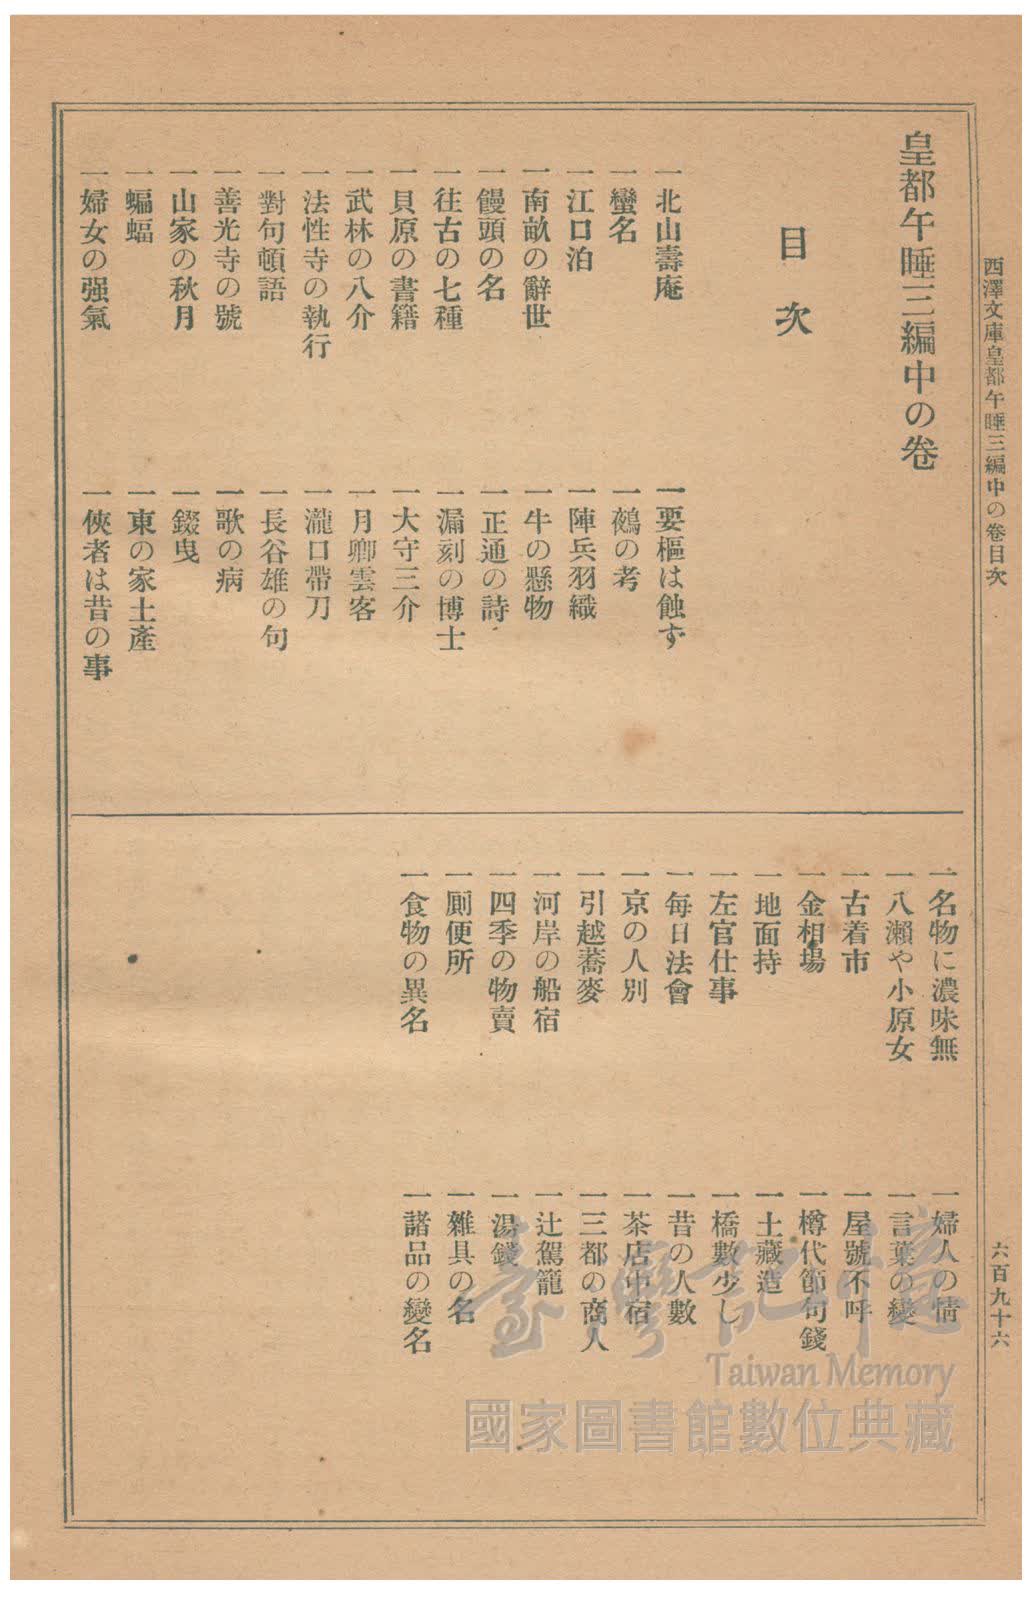 西澤文庫皇都午睡三編中の卷目次
六百九十六
皇都午睡三編中の卷
目次
一北山壽庵
一要樞は蝕ず
一蠻名
一鵺の考
一江口泊
一陣兵羽織
一南畝の辭世
一牛の懸物
一饅頭の名
一正通の詩
一往古の七種
一漏刻の博士
一貝原の書籍
一大守三介
一武林の八介
一月卿雲客
一法性寺の執行
一瀧口帶刀
一對句頓語
一長谷雄の句
一善光寺の號
一歌の病
一山家の秋月
一錣曳
一蝙蝠
一東の家土產
一婦女の强氣
一俠者は昔の事
一名物に濃味無
一婦人の情
一八瀨や小原女
一言葉の變
一古着市
一屋號不呼
一金相場
一樽代節句錢
一地面持
一土藏造
一左官仕事
一橋數少し
一每日法會
一昔の人數
一京の人別
一茶店中宿
一引越蕎麥
一三都の商人
一河岸の船宿
一辻駕籠
一四季の物賣
一湯錢
一厠便所
一雜具の名
一食物の異名
一諸品の變名
臺灣記憶
Taiwan Memory
國家圖書館數位典藏